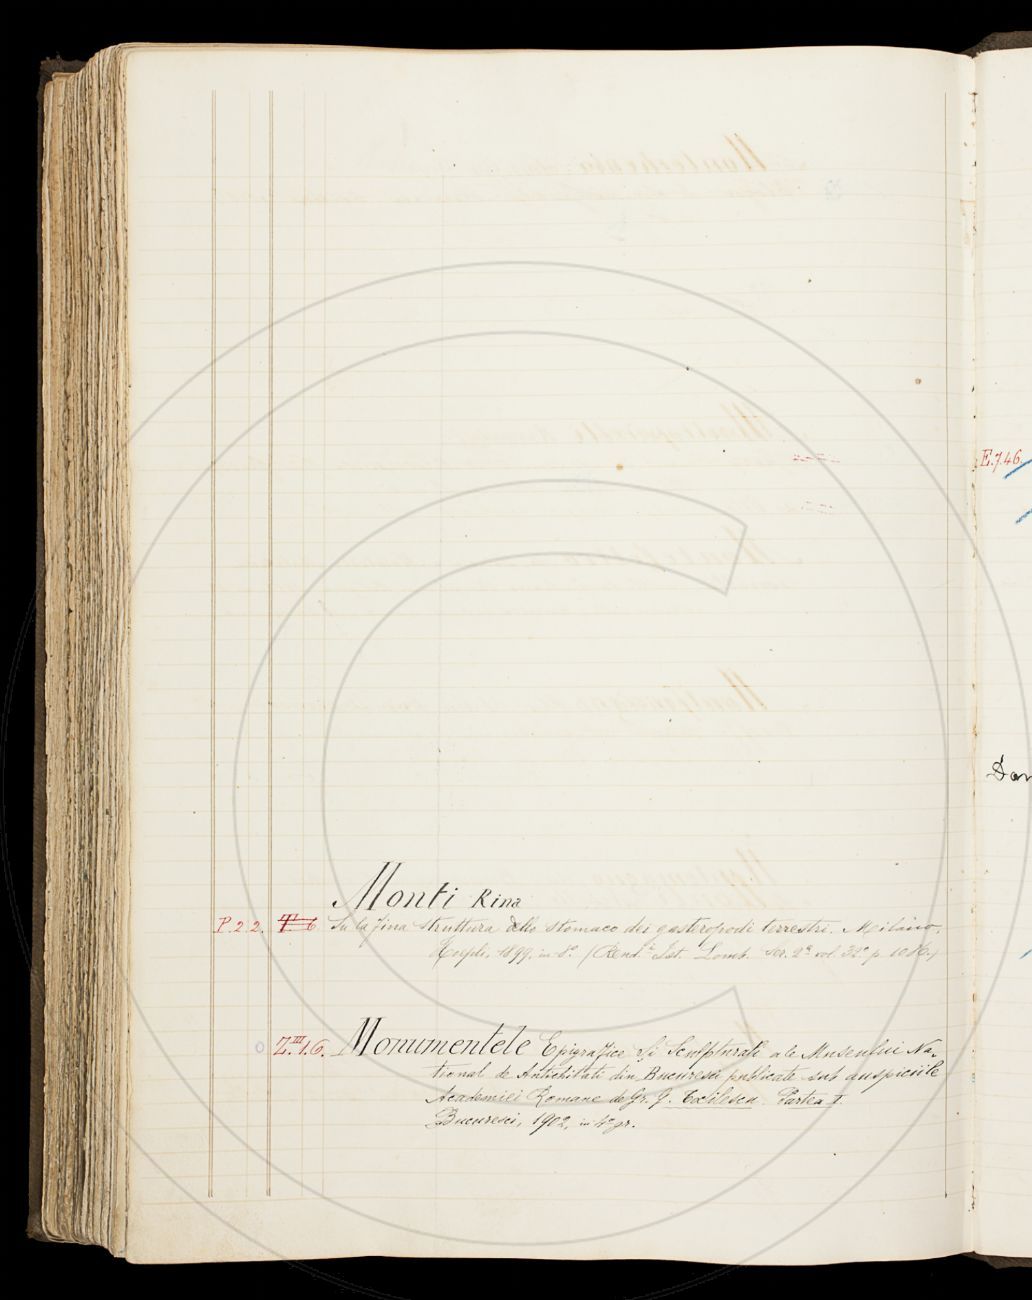 Monti Rina
P.2.2. Su la fina struttura dello stomaco dei gasteropodi terrestri. Milano,
Hoepli, 1899, in 8° (Rend.ti Ist. Lomb. Ser. 2ª vol. 32° p. 1086.)
Z.III.1.6. Monumentele Epigrafice și Sculpturali ale Museului Na-
tional de Antichitati din Bucuresci publicate sub auspiciile
Academiei Romane de Gr. G. Tocilescu. Partea I.
Bucuresci, 1902, in 4° gr.
E.7.46.